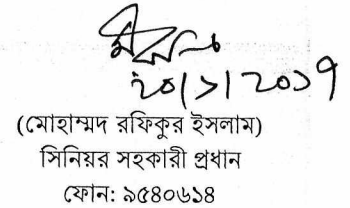 ২০/১/২০১৭
(মোহাম্মদ রফিকুর ইসলাম)
সিনিয়র সহকারী প্রধান
ফোন: ৯৫৪০৬১৪